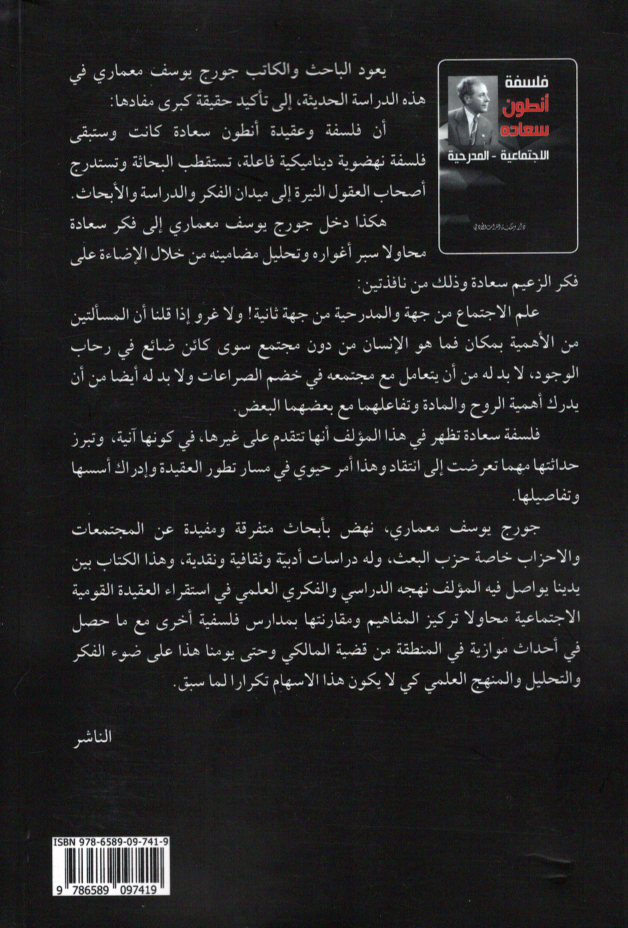 فلسفة
أنطون
سعاده
الاجتماعية - المدرحية
يعود الباحث والكاتب جورج يوسف معماري في
هذه الدراسة الحديثة، إلى تأكيد حقيقة كبرى مفادها:
أن فلسفة وعقيدة أنطون سعادة كانت وستبقى
فلسفة نهضوية ديناميكية فاعلة، تستقطب البحاثة وتستدرج
أصحاب العقول النيرة إلى ميدان الفكر والدراسة والأبحاث.
هكذا دخل جورج يوسف معماري إلى فكر سعادة
محاولا سبر أغواره وتحليل مضامينه من خلال الإضاءة على
فكر الزعيم سعادة وذلك من نافذتين:
علم الاجتماع من جهة والمدرحية من جهة ثانية! ولا غرو إذا قلنا أن المسألتين
من الأهمية بمكان فما هو الإنسان من دون مجتمع سوى كائن ضائع في رحاب
الوجود، لا بد له من أن يتعامل مع مجتمعه في خضم الصراعات ولا بد له أيضا من أن
يدرك أهمية الروح والمادة وتفاعلهما مع بعضهما البعض.
فلسفة سعادة تظهر في هذا المؤلف أنها تتقدم على غيرها، في كونها آنية، وتبرز
حداثتها مهما تعرضت إلى انتقاد وهذا أمر حيوي في مسار تطور العقيدة وإدراك أسسها
وتفاصيلها.
جورج يوسف معماري، نهض بأبحاث متفرقة ومفيدة عن المجتمعات
والاحزاب خاصة حزب البعث، وله دراسات أدبية وثقافية ونقدية، وهذا الكتاب بين
يدينا يواصل فيه المؤلف نهجه الدراسي والفكري العلمي في استقراء العقيدة القومية
الاجتماعية محاولا تركيز المفاهيم ومقارنتها بمدارس فلسفية أخرى مع ما حصل
في أحداث موازية في المنطقة من قضية المالكي وحتى يومنا هذا على ضوء الفكر
والتحليل والمنهج العلمي كي لا يكون هذا الاسهام تكرارا لما سبق.
الناشر
ISBN 978-6589-09-741-9
9 786589 097419